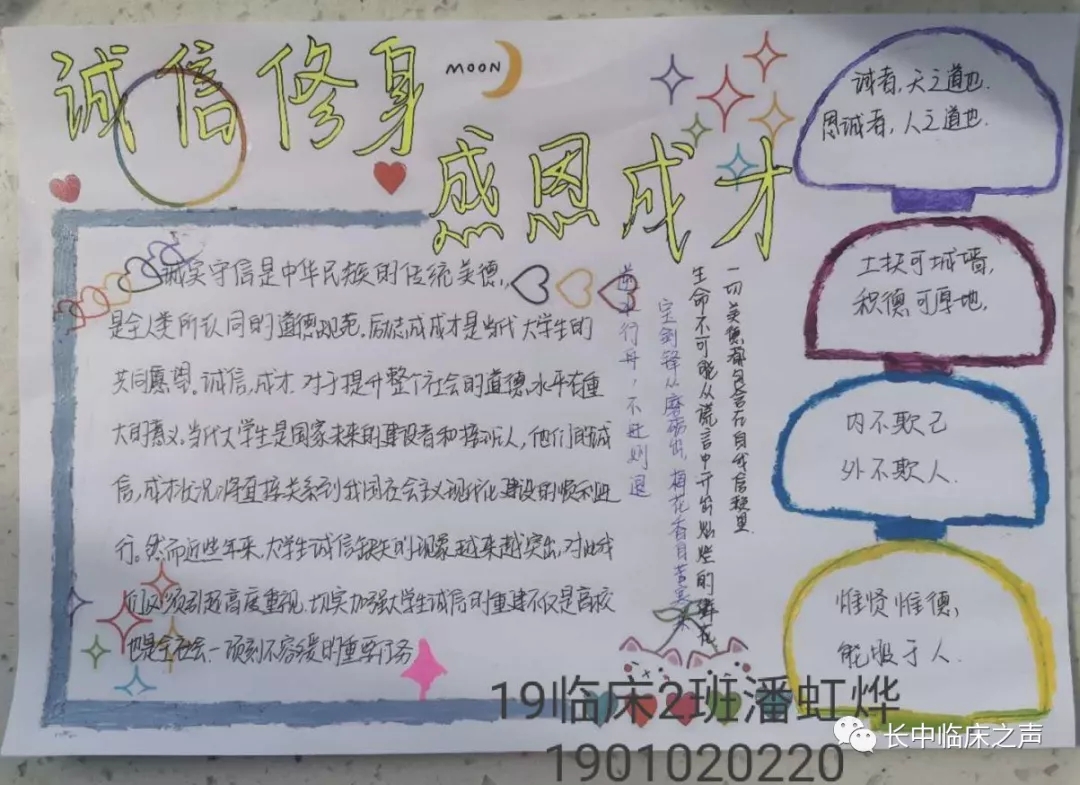 诚信修身
MOON
感恩成才
诚实守信是中华民族的传统美德,
是全人类所认同的道德规范。励志成成才是当代大学生的
共同愿望。诚信,成才.对于提升整个社会的道德水平有重
大的意义。当代大学生是国家未来的建设者和接班人,他们的诚
信,成才状况,将直接关系到我国社会主义现代化建设的顺利进
行。然而近些年来,大学生诚信缺失的现象越来越突出,对此我
们必须引起高度重视.切实加强大学生诚信的重建不仅是高校
也是全社会一项刻不容缓的重要任务
逆水行舟,不进则退
宝剑锋从磨砺出,梅花香自苦寒来
生命不可能从谎言中开出灿烂的鲜花
一切美德都包含在自我信赖里
诚者,天之道也.
恩诚者,人之道也.
土扶可城墙,
积德可厚地,
内不欺己
外不欺人.
惟贤惟德,
能服于人.
19临床2班潘虹烨
1901020220
长中临床之声